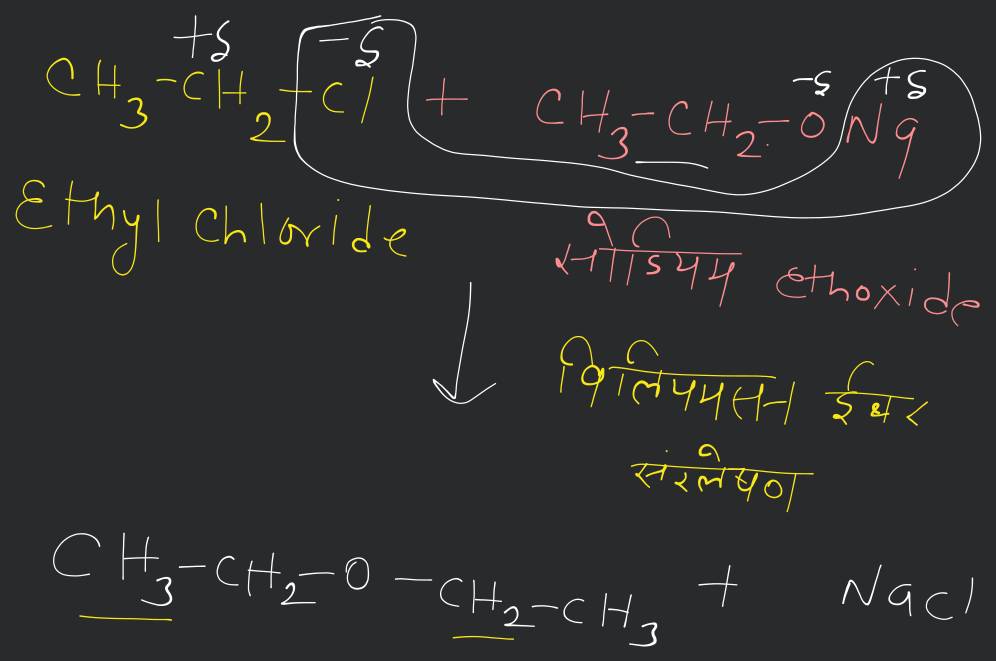 +δ -δ -δ +δ
CH₃-CH₂-Cl + CH₃-CH₂-ONa
Ethyl Chloride
सोडियम ethoxide
विलियमसन ईथर
संश्लेषण
CH₃-CH₂-O-CH₂-CH₃ + NaCl